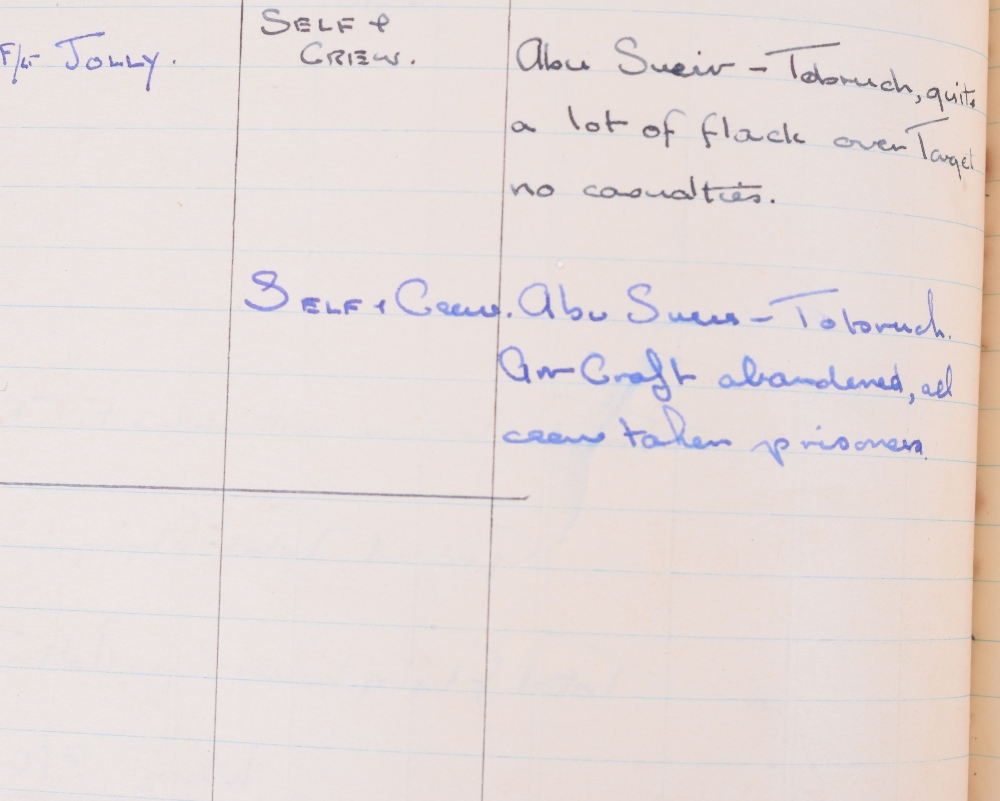 F/Lt JOLLY.
SELF &
CREW.
Abu Sueir - Tobruch, quite
a lot of flack over Target
no casualties.
SELF + Crew. Abu Sueir - Tobruch.
Air Craft abandened, all
crew taken prisoners.